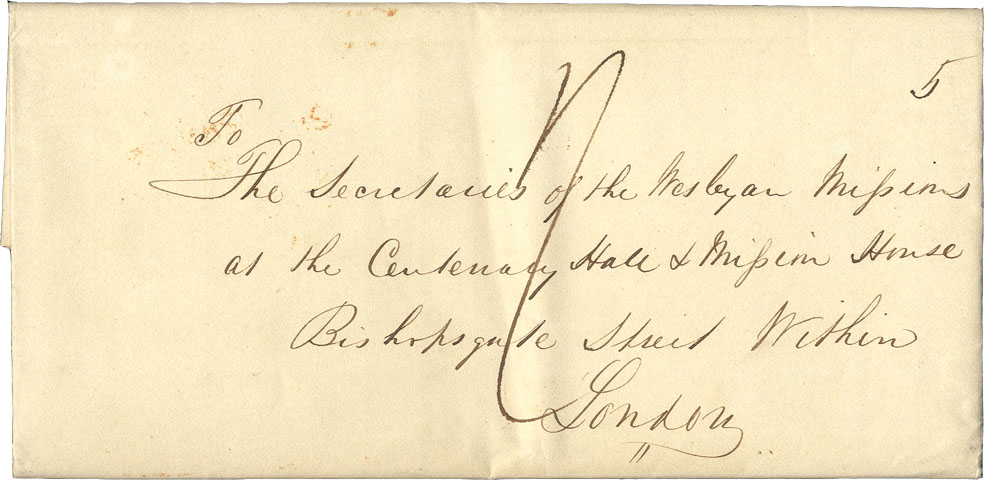 5
To
The Secretaries of the Wesleyan Missions
at the Centenary Hall & Mission House
Bishopsgate Street Within
London